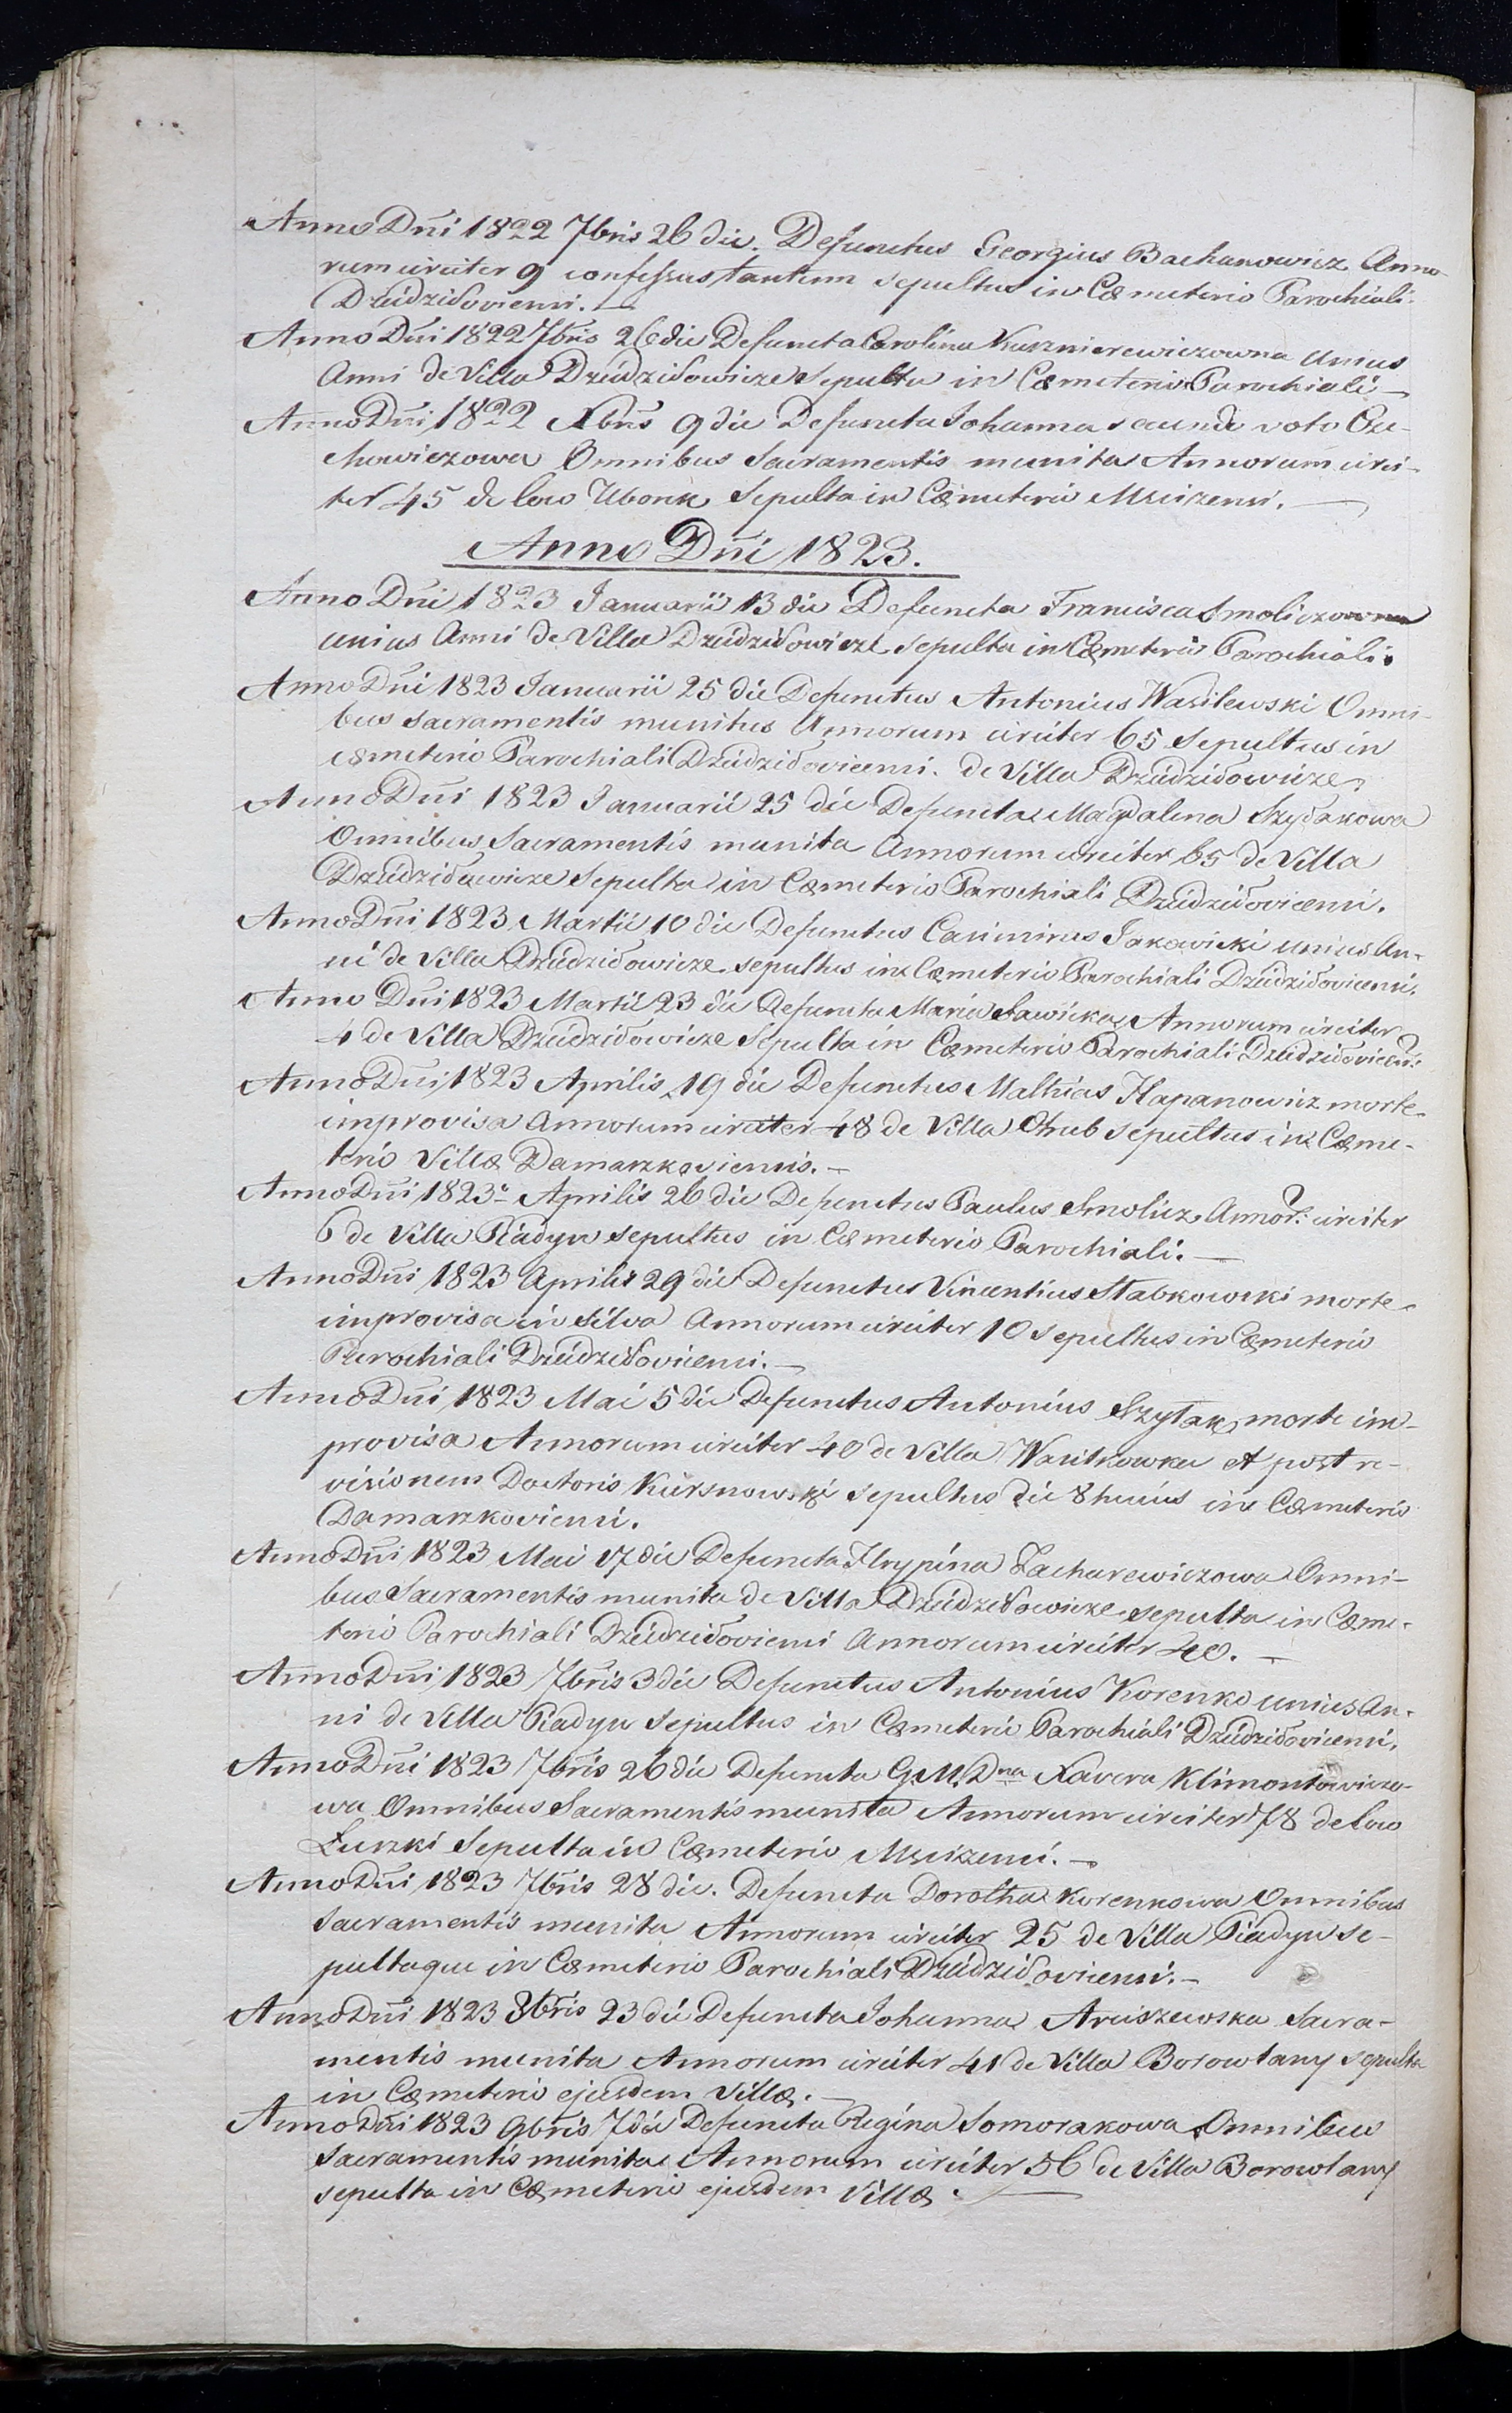 Anno Dñi 1822 7bris 26 die. Defunctus Georgius Bachanowicz Anno-
rum circiter 9 confessus tantum sepultus in Cœmeterio Parochiali
Dziedziłoviensi.—
Anno Dñi 1822 7bris 26 die Defuncta Carolina Kusznierewiczowna unius
Anni de Villa Dziedziłowicze Sepulta in Cœmeterio Parochiali—
Anno Dñi 1822 Xbris 9 die Defuncta Johanna secundi voto Cze-
chowiczowa Omnibus Sacramentis munita Annorum circi-
ter 45 de loco Uborek Sepulta in Cœmeterio Mscizensi.—
Anno Dñi 1823.
Anno Dñi 1823 Januarii 13 die Defuncta Francisca Smoliczowna
unius Anni de Villa Dziedziłowicze sepulta in Cœmeterio Parochiali.
Anno Dñi 1823 Januarii 25 die Defunctus Antonius Wasilewski Omni-
bus Sacramentis munitus Annorum circiter 65 Sepultus in
cœmeterio Parochiali Dziedziłovicensi. de Villa Dziedziłowicze
Anno Dñi 1823 Januarii 25 die Defuncta Magdalena Szyłakowa
Omnibus Sacramentis munita Annorum circiter 65 de Villa
Dziedziławicze Sepulta in Cœmeterio Parochiali Dziedziłovicensi.
Anno Dñi 1823 Martii 10 die Defunctus Casimirus Jakowicki unius An-
ni de Villa Dziedziłowicze sepultus in Cœmeterio Parochiali Dziedziłovicensi.
Anno Dñi 1823 Martii 23 die Defuncta Maria Sawicka Annorum circiter
4 de Villa Dziedziłowicze Sepulta in Cœmeterio Parochiali Dziedziłovicen:
Anno Dñi 1823 Aprilis 19 die Defunctus Mathias Hapanowicz morte
improvisa Annorum circiter 48 de Villa Otrub sepultus in Cœme-
terio Villæ Damarzkoviensis.—
Anno Dñi 1823º Aprilis 26 die Defunctus Paulus Smolicz, Annor: circiter
6 de Villa Piadyn sepultus in Cœmeterio Parochiali.—
Anno Dñi 1823 Aprilis 29 die Defunctus Vincentius Stabkowski morte
improvisa in Silva Annorum circiter 10 sepultus in Cœmeterio
Parochiali Dziedziłovicensi.—
Anno Dñi 1823 Mai 5 die Defunctus Antonius Szyłak, morte im-
provisa Annorum circiter 40 de Villa Wasitkowka et post re-
visionem Doctoris Kursnowski sepultus die 8 huius in Cœmeterio
Damarzkoviensi.
Anno Dñi 1823 Mai 17 die Defuncta Hrypina Zacharewiczowa Omni-
bus Sacramentis munita de Villa Dziedziłowicze sepulta in Cœme-
terio Parochiali Dziedziłoviensi Annorum circiter 40.—
Anno Dñi 1823 7bris 3 die Defunctus Antonius Korenko unius An-
ni de Villa Piadyn Sepultus in Cœmeterio Parochiali Dziedziłovicensi.
Anno Dñi 1823 7bris 26 die Defuncta G. M. Dna Xavera Klimontowiczo-
wa Omnibus Sacramentis munita Annorum circiter 78 de loco
Łuszki Sepulta in Cœmeterio Mscizensi.—
Anno Dñi 1823 7bris 28 die. Defuncta Dorotha Korenkowa Omnibus
Sacramentis munita Annorum circiter 25 de Villa Piadyn se-
pultaque in Cœmeterio Parochiali Dziedziłovicensi.—
Anno Dñi 1823 8bris 23 die Defuncta Johanna Arciszewska Sacra-
mentis munita Annorum circiter 41 de Villa Borowlany sepulta
in Cœmeterio ejusdem Villæ.—
Anno Dñi 1823 9bris 7 die Defuncta Regina Somorakowa Omnibus
Sacramentis munita Annorum circiter 56 de Villa Borowlany
sepulta in Cœmeterio ejusdem Villæ.—